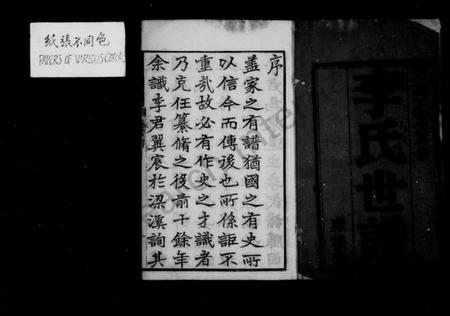 紙張不同色
PAPERS OF VARIOUS COLORS
序
蓋家之有譜猶國之有史所
以信今而傳後也所係詎不
重哉故必有作史之才識者
乃克任纂脩之役前十餘年
余識李君翼宸於梁溪詢其
李氏世譜